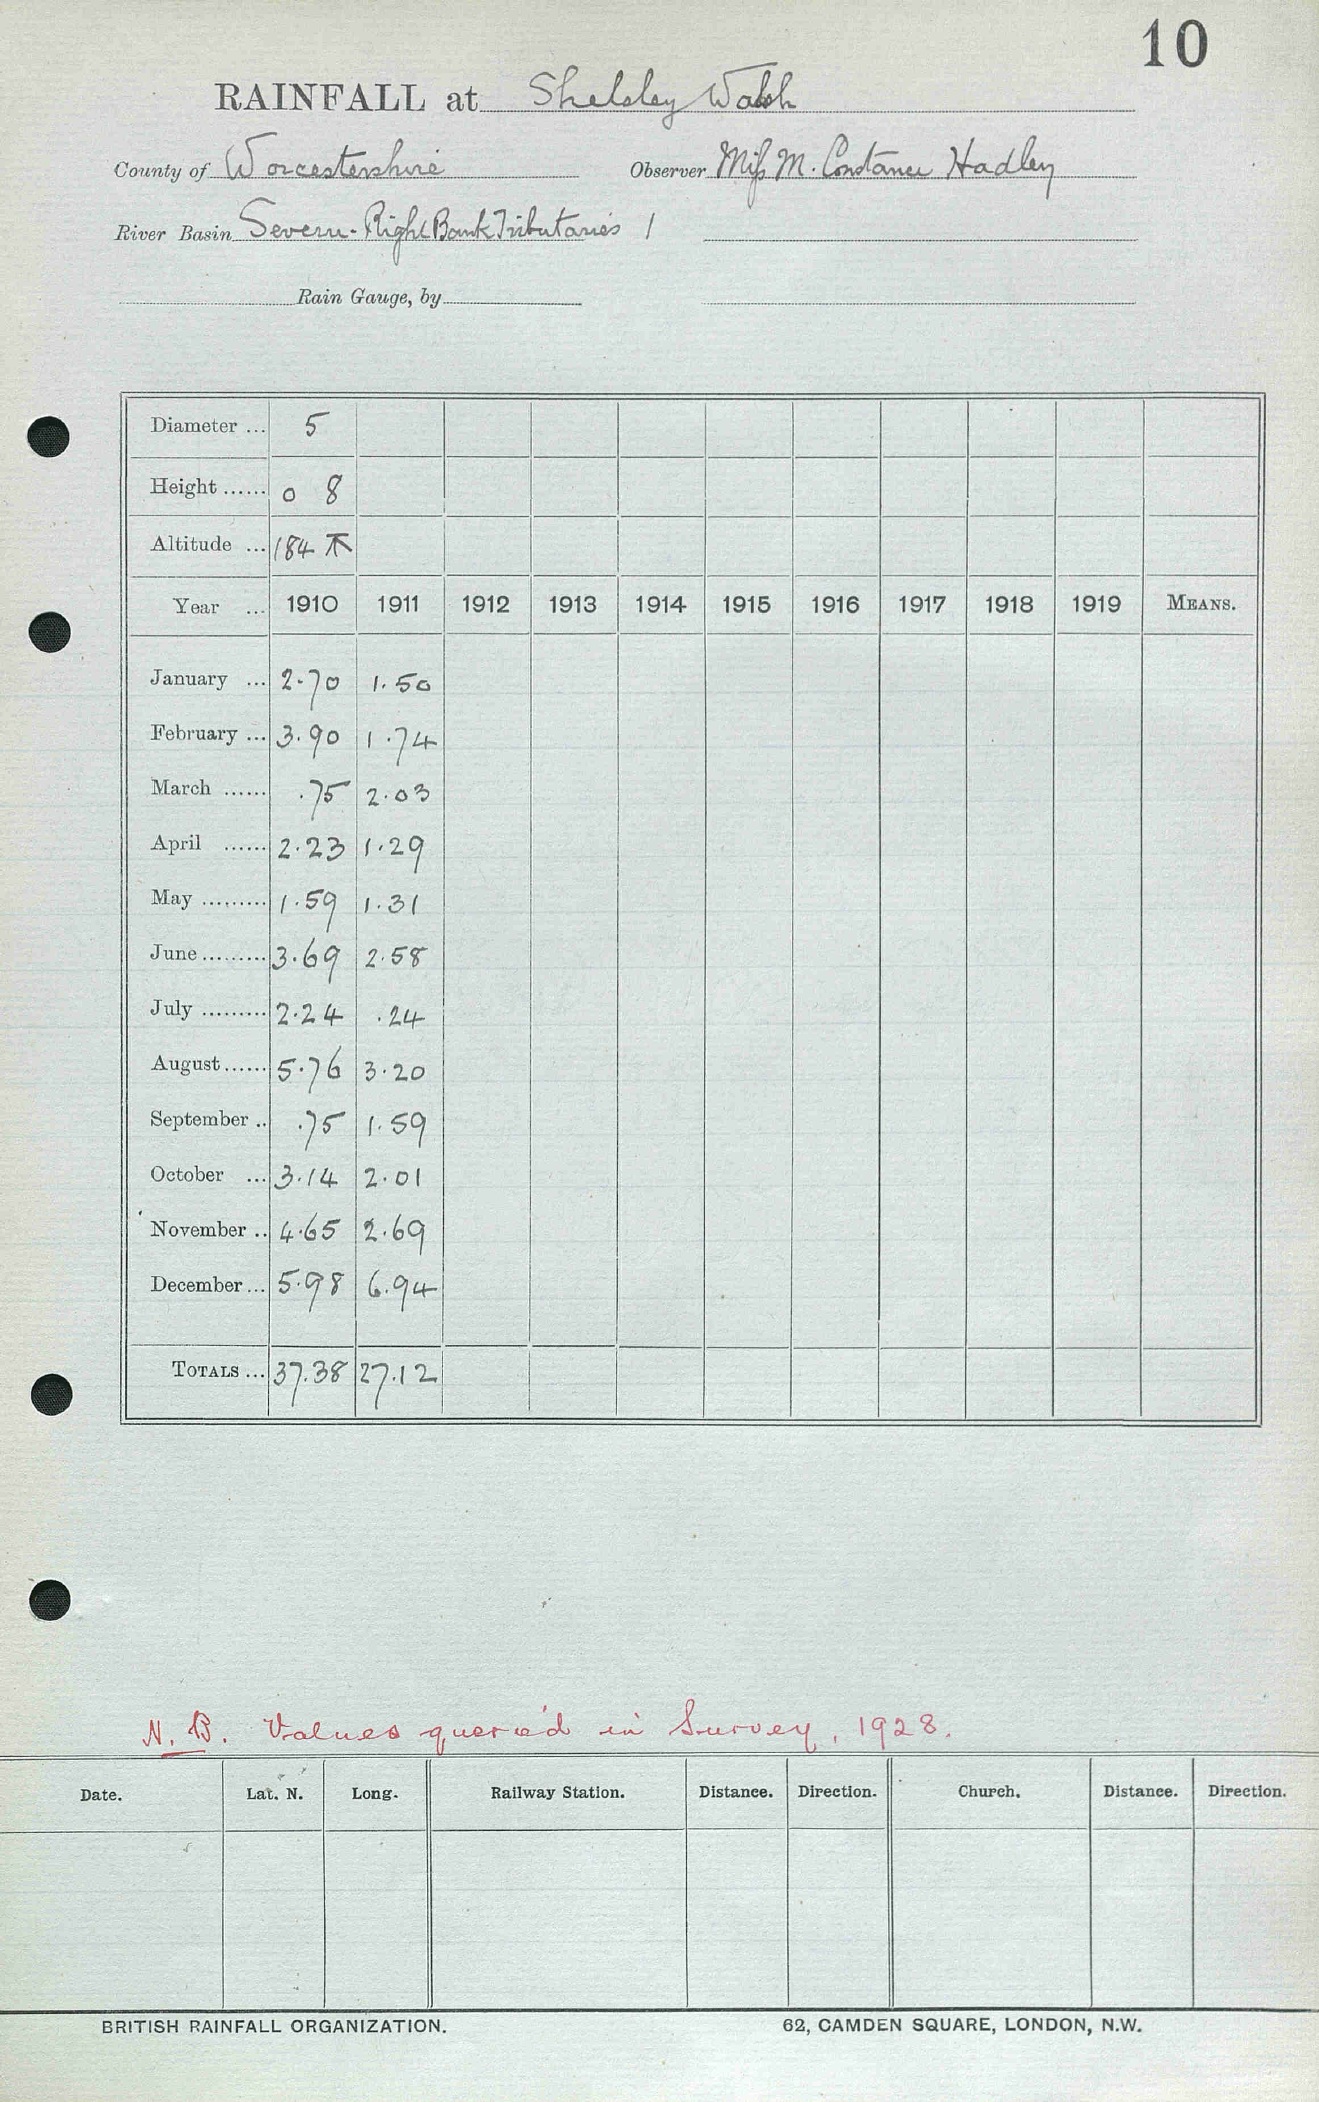 10
RAINFALL at Shelsley Walsh
County of Worcestershire Observer Miss M. Constance Hadley
River Basin Severn-Right Bank Tributaries 1
Rain Gauge, by
Diameter ... 5
Height ...... 0 8
Altitude ... 184
Year ... 1910 1911 1912 1913 1914 1915 1916 1917 1918 1919 MEANS.
January ... 2.70 1.50
February ... 3.90 1.74
March ...... .75 2.03
April ...... 2.23 1.29
May ......... 1.59 1.31
June ......... 3.69 2.58
July ......... 2.24 .24
August ...... 5.76 3.20
September .. .75 1.59
October ... 3.14 2.01
November .. 4.65 2.69
December ... 5.98 6.94
TOTALS ... 37.38 27.12
N.B. Values queried in Survey, 1928.
Date. Lat. N. Long. Railway Station. Distance. Direction. Church. Distance. Direction.
BRITISH RAINFALL ORGANIZATION. 62, CAMDEN SQUARE, LONDON, N.W.